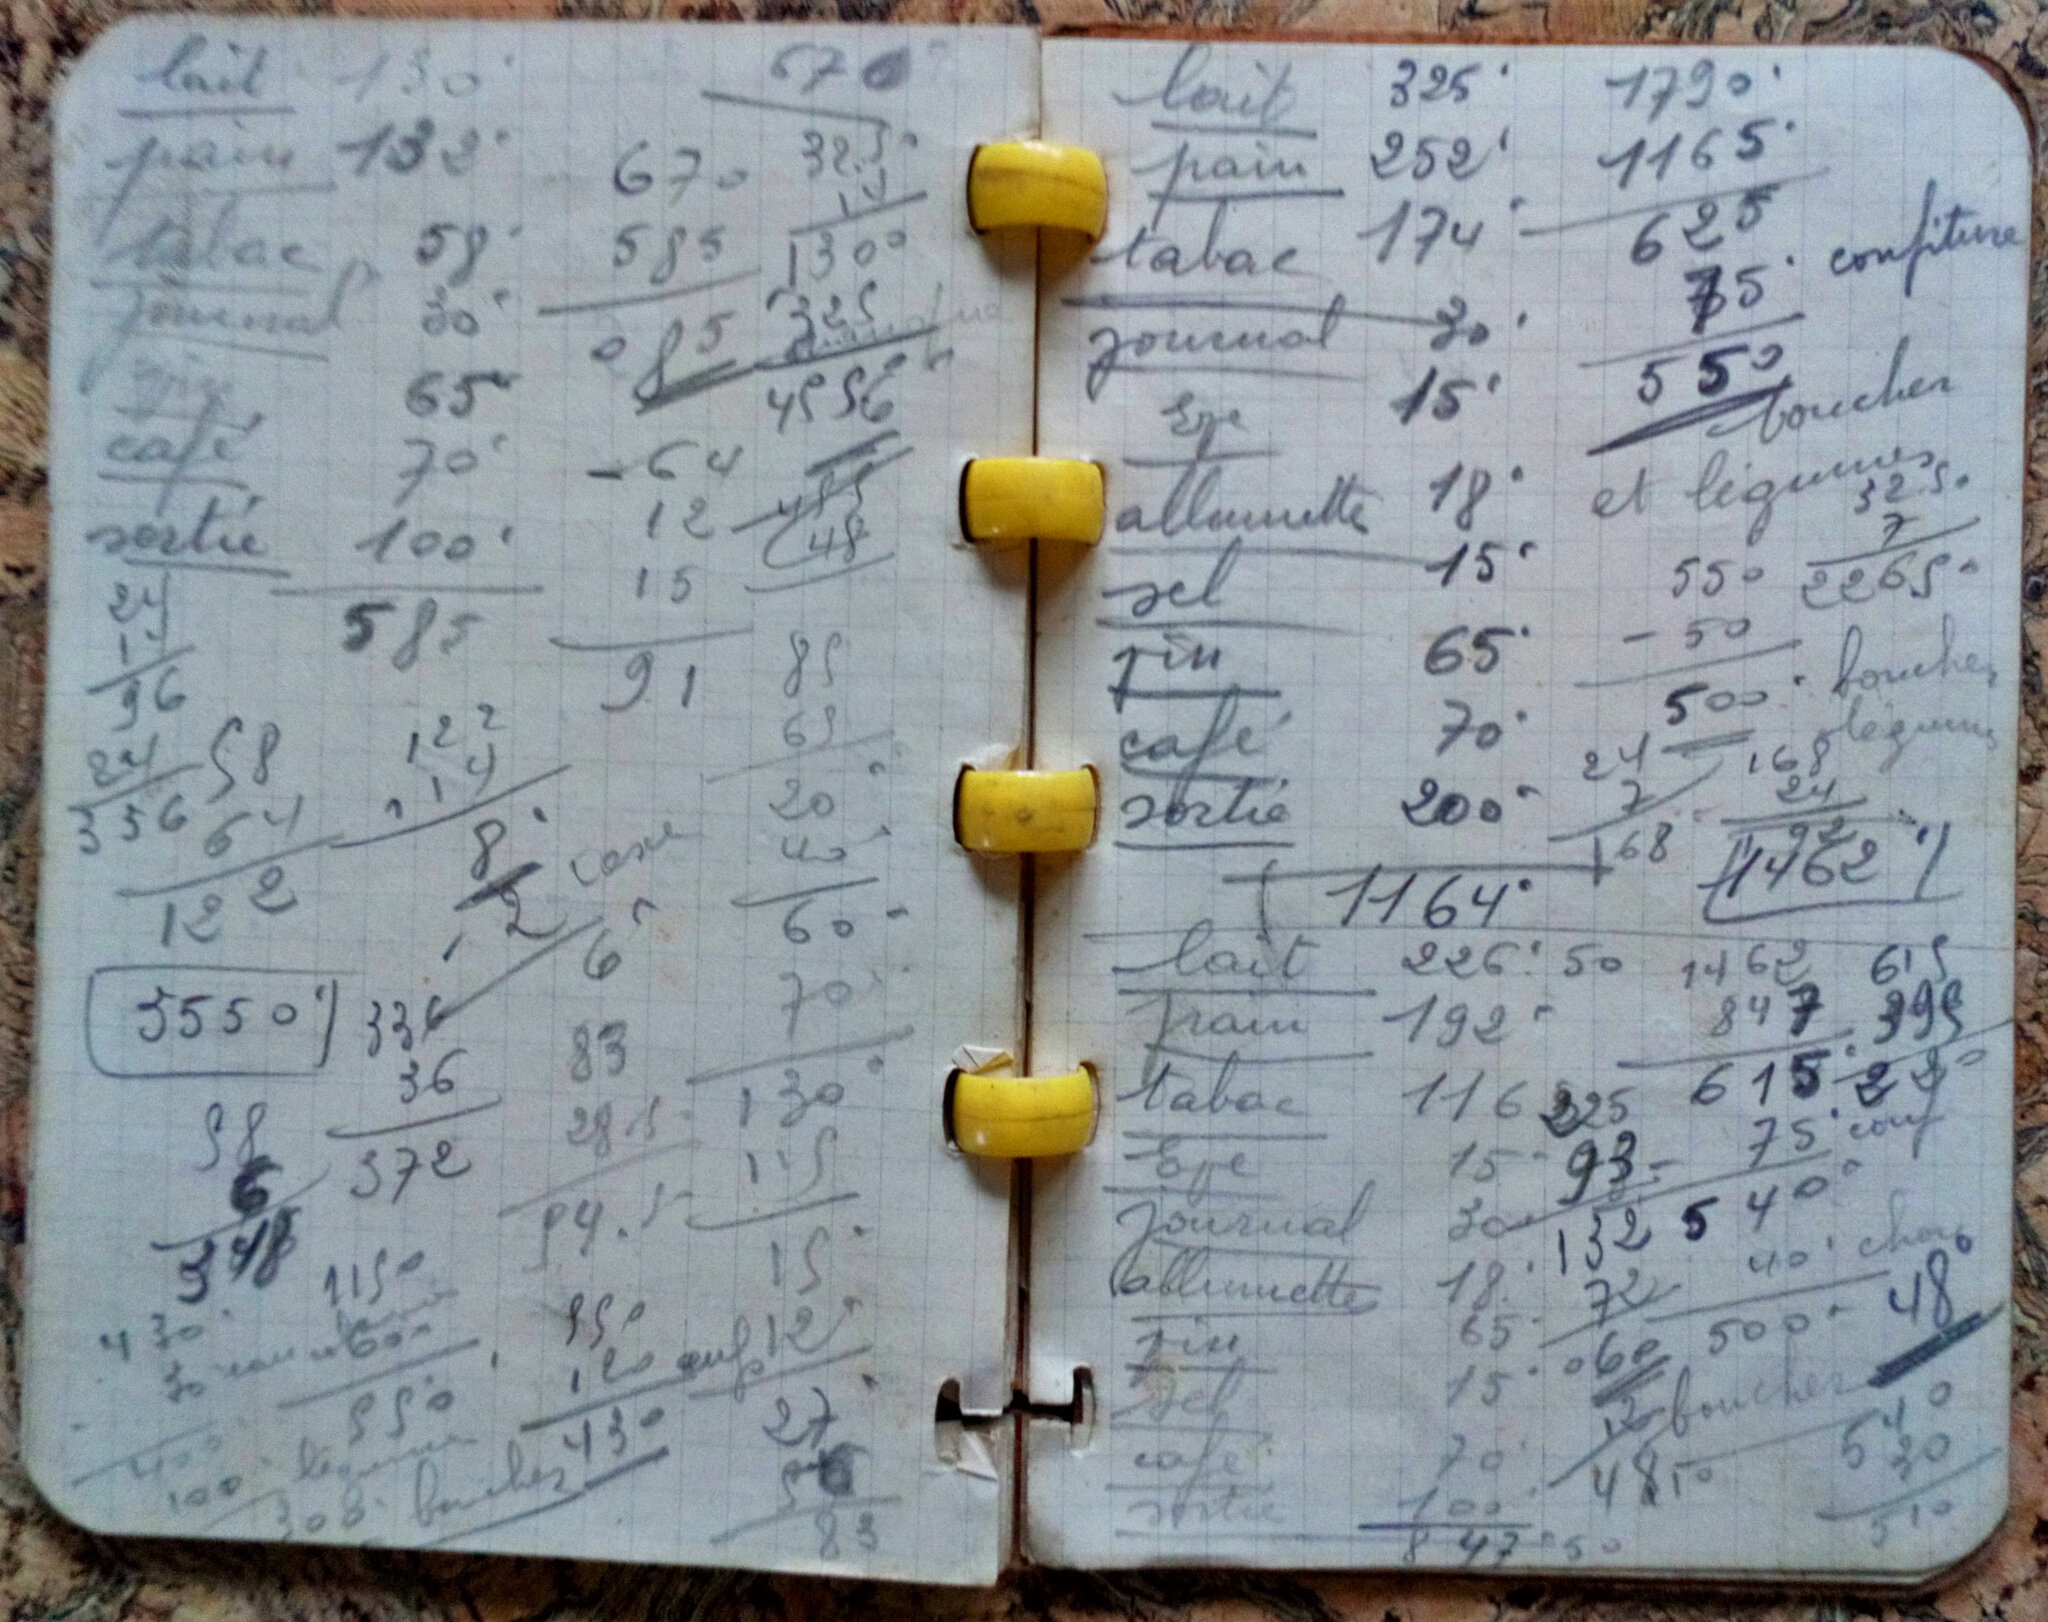 lait 130
pain 132
tabac 58
journal 30
65
café 70
sortie 100
585
670
670
585
085
- 64
12
15
91
325
14
1300
325
4556
48
24
14
96
24
336
58
64
122
122
114
8
2
6
5550
336
36
372
58
6
348
83
28.5
54.5
85
65
20
40
60
70
130
115
15
12
27
56
83
1150
600
550
100 légumes
boucher
550
120 œufs
430
lait 325 1790
pain 252 1165
tabac 174 625
75 confiture
journal 30 550
15 boucher
allumette 18 et légumes
sel 15
vin 65
café 70
sortie 200
1164
325
7
2265
550
- 50
500 boucher
légumes
24
7
168
168
24
1462
lait 226.50
pain 192
tabac 116
15
journal 30
allumette 18
vin 65
sel 15
café 70
sortie 100
847.50
1462
847
615
75 conf
540
40 chou
500
boucher
615
395
220
225
93
132
72
060
12
48
48
540
30
510